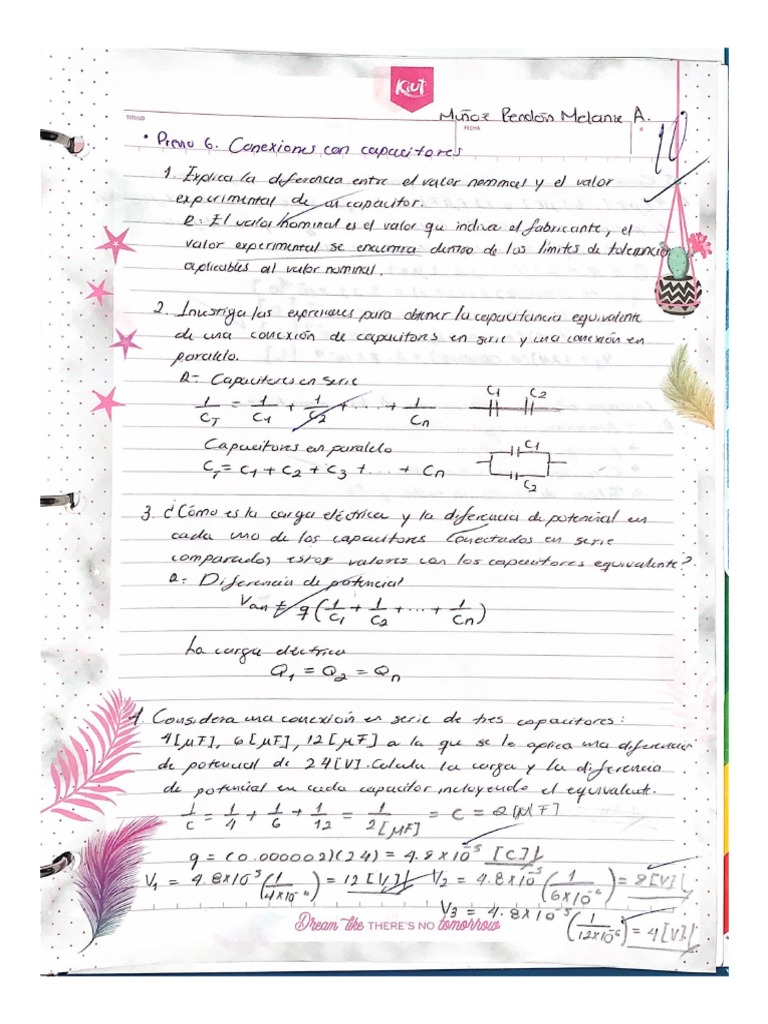 Kiut
Muñoz Rendón Melanie A.
TITULO
FECHA
10
• Previo 6. Conexiones con capacitores
1. Explica la diferencia entre el valor nominal y el valor
experimental de un capacitor.
R= El valor nominal es el valor que indica el fabricante, el
valor experimental se encuentra dentro de los limites de tolerancia
aplicables al valor nominal.
2. Investiga las expresiones para obtener la capacitancia equivalente
de una conexión de capacitores en serie y una conexión en
paralelo.
R= Capacitores en serie
1/C_T = 1/C1 + 1/C2 + ... + 1/Cn
C1 C2
Capacitores en paralelo
C_T = C1 + C2 + C3 + ... + Cn
C1
C2
3. ¿Cómo es la carga eléctrica y la diferencia de potencial en
cada uno de los capacitores conectados en serie
comparados estos valores con los capacitores equivalente?
R= Diferencia de potencial
Van = q(1/C1 + 1/C2 + ... + 1/Cn)
La carga eléctrica
Q1 = Q2 = Qn
4. Considera una conexión en serie de tres capacitores:
4[μF], 6[μF], 12[μF] a la que se le aplica una diferencia
de potencial de 24[V]. Calcula la carga y la diferencia
de potencial en cada capacitor incluyendo el equivalente.
1/C = 1/4 + 1/6 + 1/12 = 1/2[μF] = C = 2[μF]
q = (0.000002)(24) = 4.8x10⁻⁵ [C]
V1 = 4.8x10⁻⁵(1/4x10⁻⁶) = 12[V] V2 = 4.8x10⁻⁵(1/6x10⁻⁶) = 8[V]
V3 = 4.8x10⁻⁵(1/12x10⁻⁶) = 4[V]
Dream like THERE'S NO tomorrow